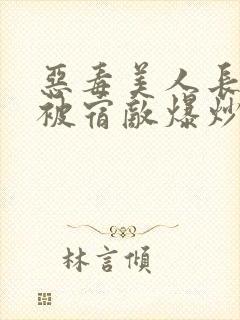 惡毒美人長
被宿敵爆炒
林言傾